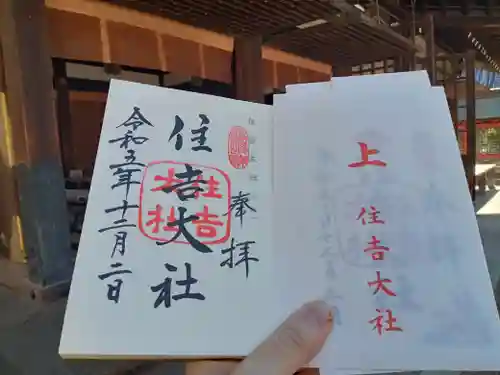 奉拝
住吉大社
住吉大社
令和五年十二月二日
上
住吉大社